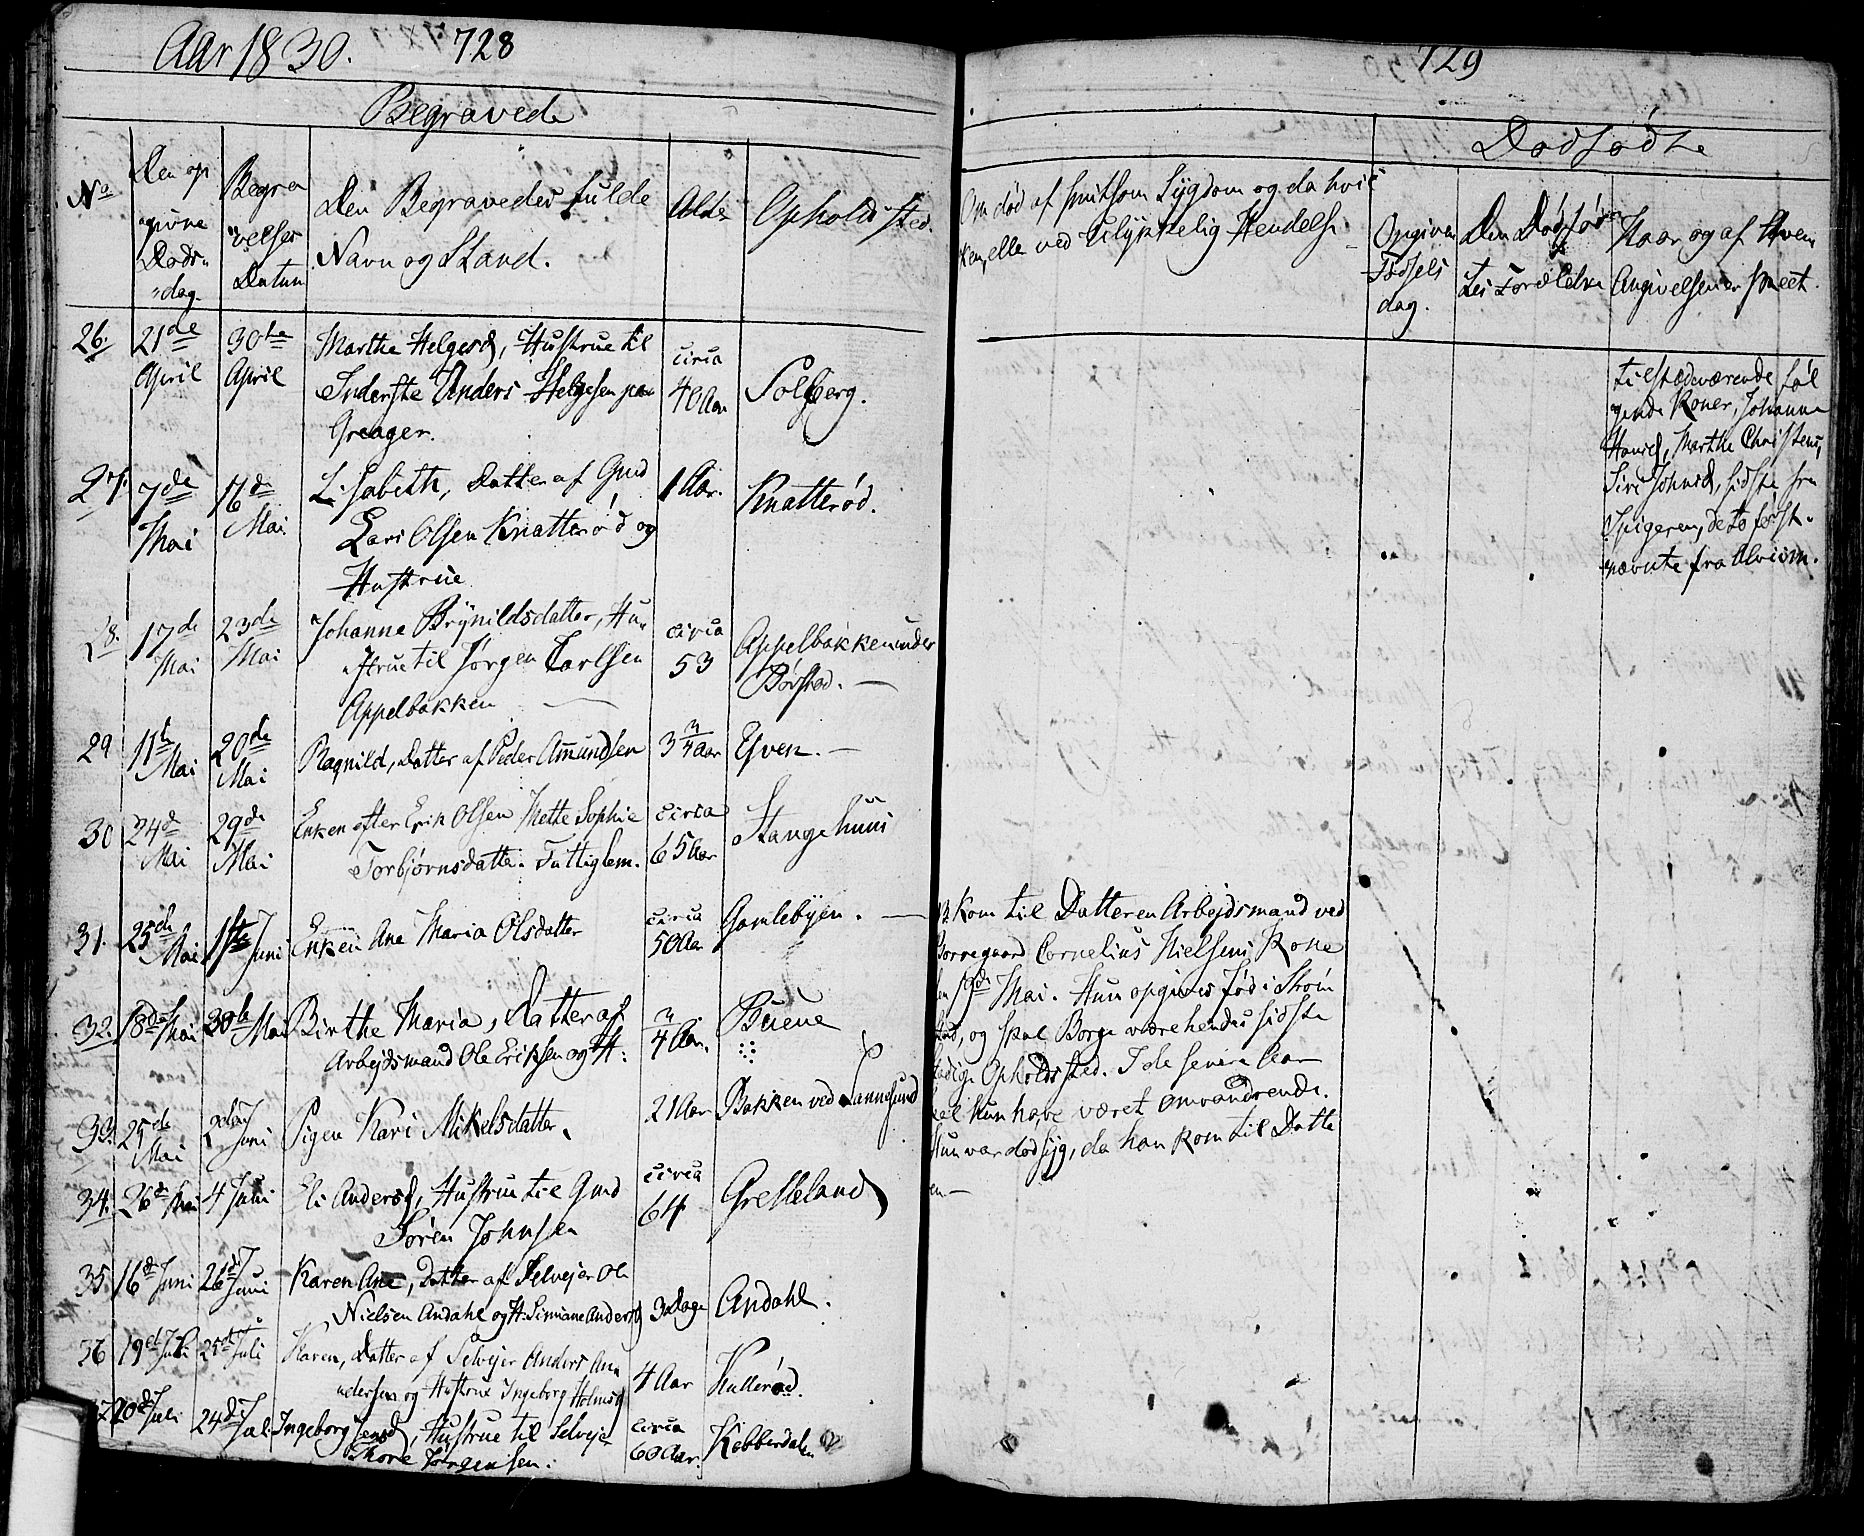 Aar 1830. 728
Begravede
No
Den op
givne
Døds-
dag.
Begra
velses
Datum
Den Begravedes fulde
Navn og Stand.
Alder
Opholdssted.
26. 21de April 30te April Marthe Helgesd, Hustrue til
Inderste Anders Helgesen paa
Greager.
circa
40 Aar
Solberg.
27. 7de Mai 16de Mai Lisabeth, Datter af Gmd
Lars Olsen Knatterød og
Hustrue
1 Aar.
Knatterød.
28. 17de Mai 23de Mai Johanne Brynildsdatter, Hu-
strue til Jørgen Carlsen
Appelbakken
circa
53
Appelbakken under
29 11te Mai 20de Mai Ragnild, Datter af Peder Amundsen
3 3/4 Aar
Yven.
30 24de Mai 29de Mai Enken efter Erik Olsen Mette Sophie
Torbjørnsdatter. Fattiglem.
circa
65 Aar
Stangehuus
31. 25de Mai 1ste Juni Enken Ane Maria Olsdatter
circa
50 Aar
Gamlebyen.
32. 18de Mai 30te Mai Birthe Maria, Datter af
Arbejdsmand Ole Eriksen og H:
3/4 Aar.
Buene
33. 25de Mai 2den Juni Pigen Kari Mikelsdatter.
21 Aar
Bakken ved Sannesund
34. 26de Mai 4 Juni Eli Andersd, Hustrue til Gmd
Søren Johnsen
circa
64
Gresleland
35 16de Juni 26de Juni Karen Ane, Datter af Selvejer Ole
Nielsen Andahl og H: Andersd
3 Dage
Andahl.
36 19de Juli 25de Juli Karen, Datter af Selvejer Anders An-
dersen og Hustrue Ingeborg Holmsd
4 Aar
Kullerød.
20de Juli 24de Jul. Ingeborg Jensd, Hustrue til Selvejer
Thore Jørgensen.
circa
60 Aar.
Kebberdalen
729
Dødfødte
Om død af smitsom Sygdom og da hvil
ken, eller ved Ulykkelig Hendelse.
Opgiven
Fødsels
dag.
Den Dødfød
tes Forældre
Naar og af Hvem
Angivelsen er skeet.
tilstædeværende føl
gende Koner, Johanne
Hansd, Marthe Christens,
Siri Johnsd, sidste fra
Spigeren, de to først-
nævnte fra Alvim.
Kom til Datteren Arbejdsmand ved
Borregaard Cornelius Nielsens Kone
den 19de Mai. Hun opgives fød i Strøm
stad, og skal Borge være hendes sidste
stadige Opholdssted. I de senere Aar
skal hun have været omvandrende.
Hun var dødsyg, da han kom til Datte
en